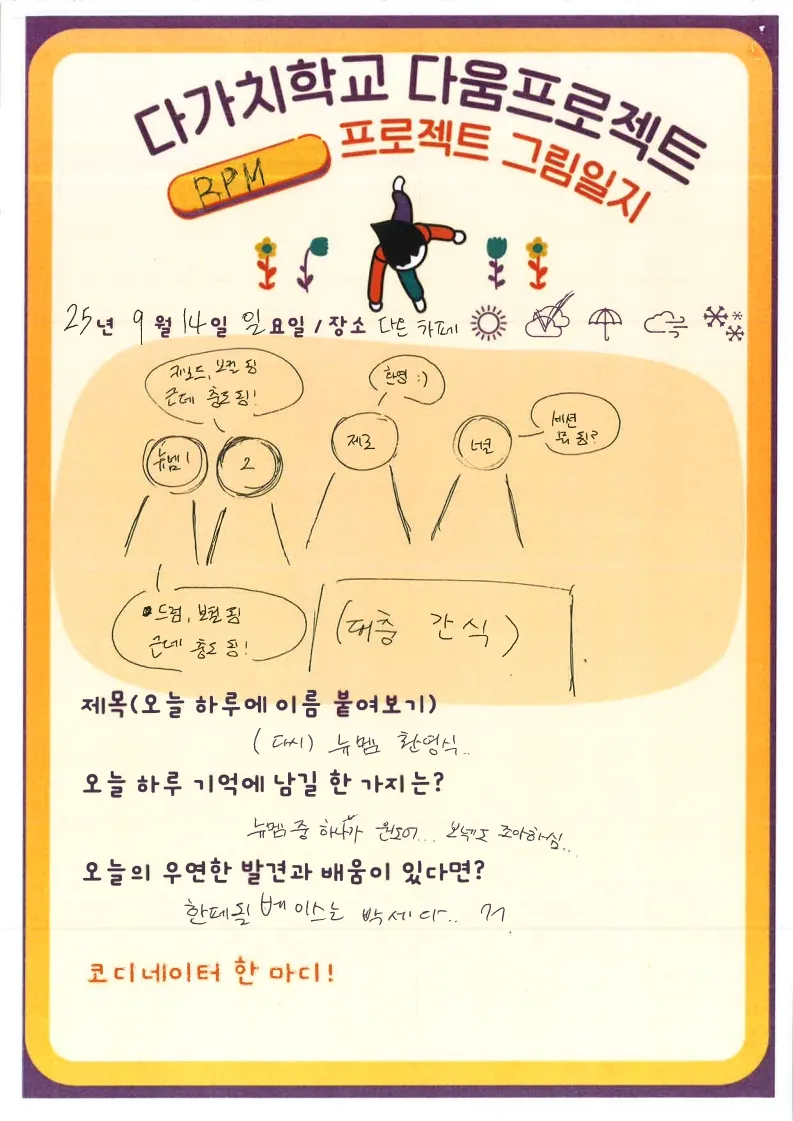 다가치학교 다움프로젝트
프로젝트 그림일지
RPM
25년 9월 14일 일요일 / 장소 다온 카페
키보드, 보컬 됨
근데 춤도 됨!
환영 :)
세션
뭐 됨?
뉴멤1
2
제로
너면
드럼, 보컬 됨
근데 춤도 됨!
(대충 간식)
제목(오늘 하루에 이름 붙여보기)
(다시) 뉴멤 환영식..
오늘 하루 기억에 남길 한 가지는?
뉴멤 중 하나가 원도어... 보넥도 조아하심..
오늘의 우연한 발견과 배움이 있다면?
한페될 베이스는 빡세다..
코디네이터 한 마디!